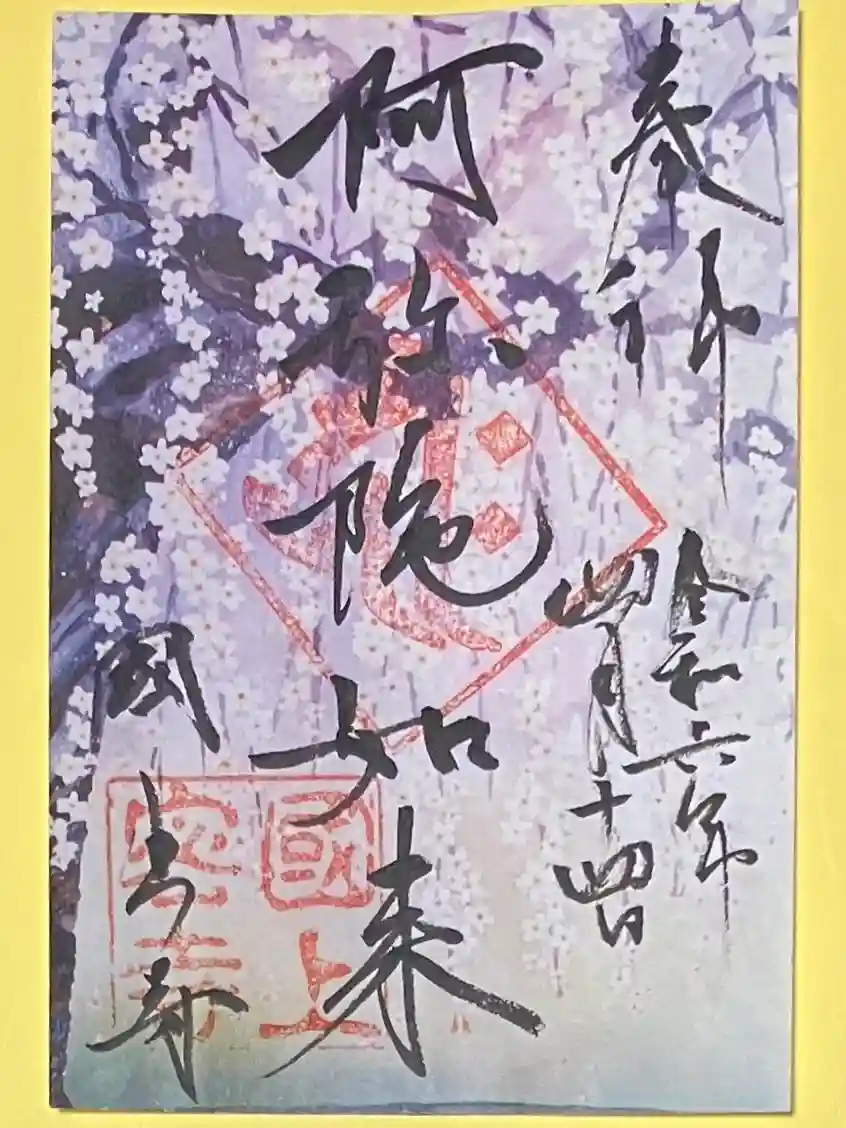 奉拝
令和六年
四月十四日
阿弥陀如来
國上寺
國上